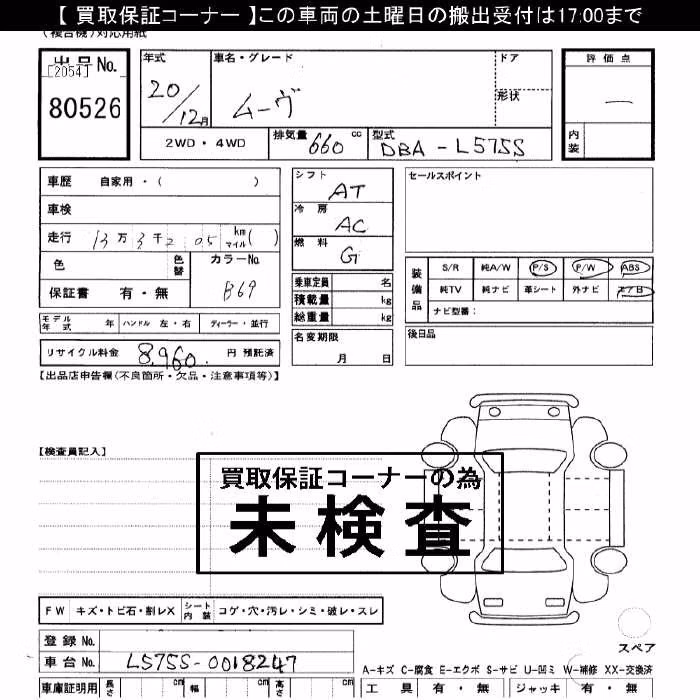 【 買取保証コーナー 】この車両の土曜日の搬出受付は17:00まで
(複合機)対応用紙
出品No.
[2054]
80526
年式
20/12月
車名・グレード
ムーヴ
ドア
形状
評価点
一
内装
2WD・4WD
排気量 660 cc
型式 DBA-L575S
車歴 自家用・( )
車検
走行 13万3千2 05 km マイル( )
色
色替
カラーNo. B69
保証書 有・無
シフト AT
冷房 AC
燃料 G
乗車定員 名
積載量 kg
総重量 kg
セールスポイント
装備品
S/R 純A/W P/S P/W ABS
純TV 純ナビ 革シート 外ナビ エアB
ナビ型番:
モデル年式 年 ハンドル 左・右 ディーラー・並行
名変期限
月 日
後日品
リサイクル料金 8,960 円 預託済
【出品店申告欄(不良箇所・欠品・注意事項等)】
【検査員記入】
買取保証コーナーの為
未検査
FW キズ・トビ石・割レX シート内装 コゲ・穴・汚レ・シミ・破レ・スレ
スペア
登録No.
車台No. L575S-0018247
A-キズ C-腐食 E-エクボ S-サビ U-凹ミ W-補修 XX-交換済
車庫証明用 長さ cm 幅 cm 高さ cm
工具 有・無 ジャッキ 有・無